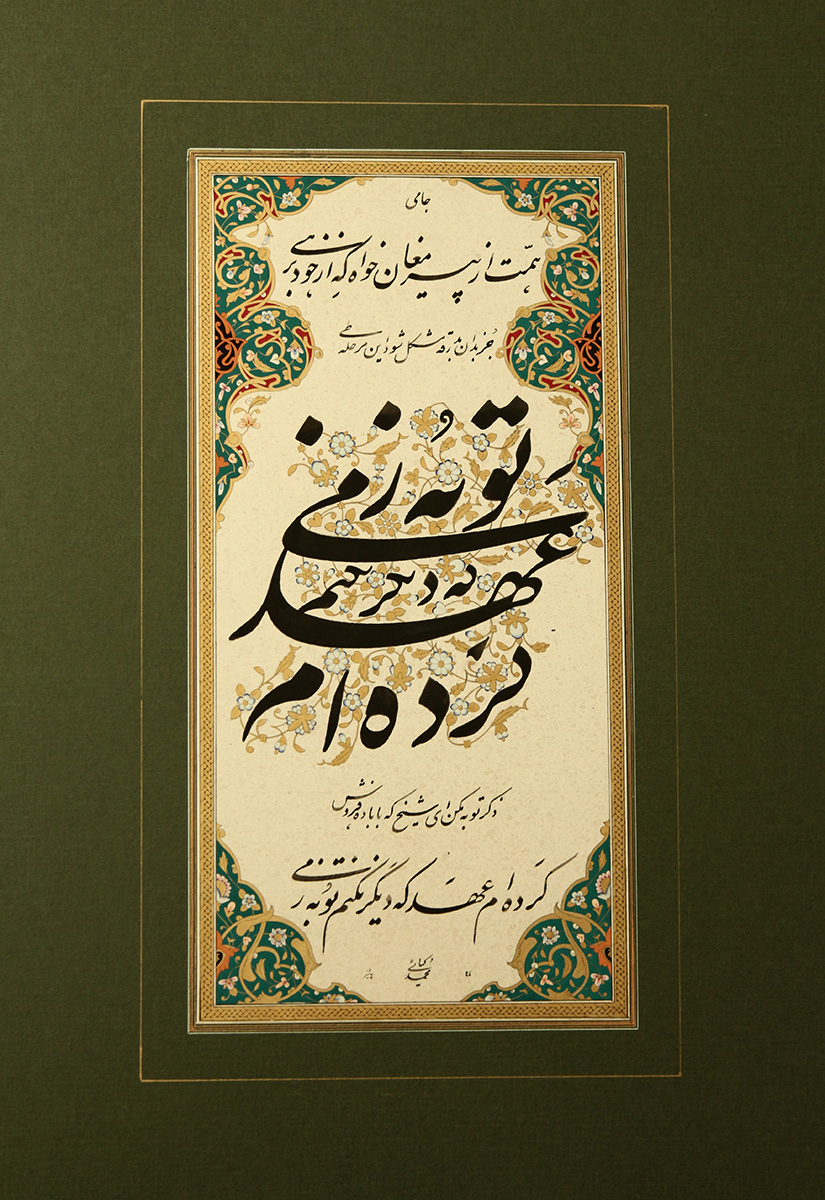 جامی
همّت از پیر مغان خواه که از خود برهی
جز بدان بدرقه مشکل شود این مرحله طی
توبه ز می
عهد که دیگر نکنم
کرده ام
ذکر توبه مکن ای شیخ که با باده فروش
کرده ام عهد که دیگر نکنم توبه ز می